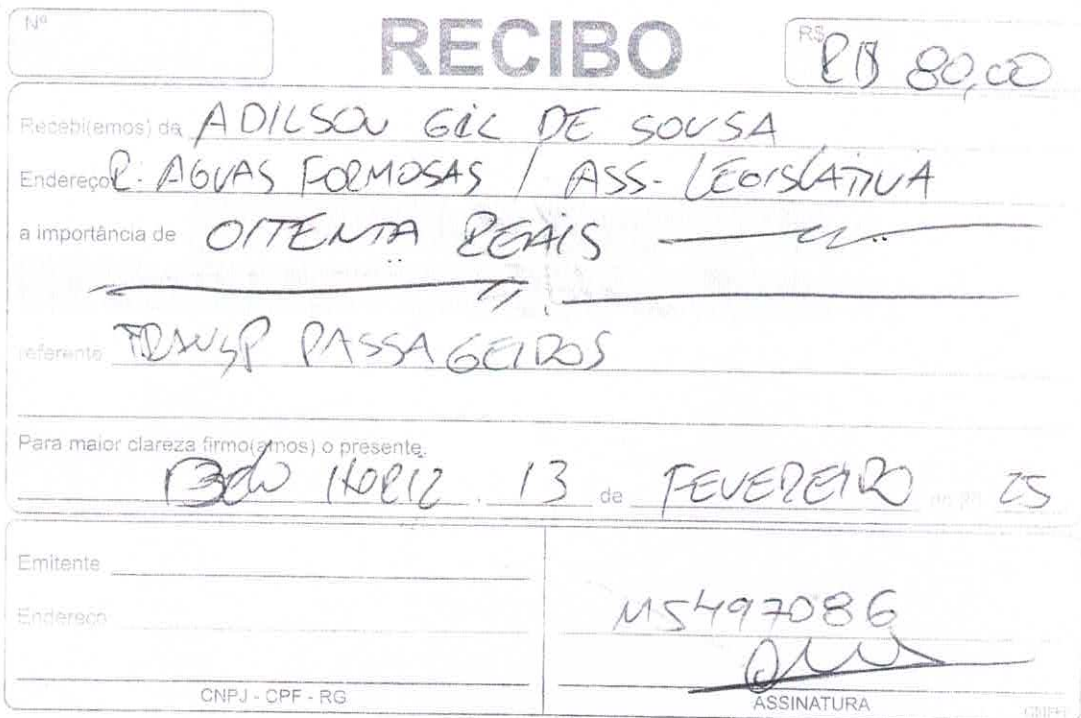 Nº
RECIBO
R$ R$ 80,00
Recebi(emos) da ADILSON GIL DE SOUSA
Endereço R. AGUAS FORMOSAS / ASS- LEGISLATIVA
a importância de OITENTA REAIS
referente TRANSP PASSAGEIROS
Para maior clareza firmo(amos) o presente.
Belo HORIZ. 13 de FEVEREIRO de 20 25
Emitente
Endereço
CNPJ - CPF - RG
M5497086
ASSINATURA